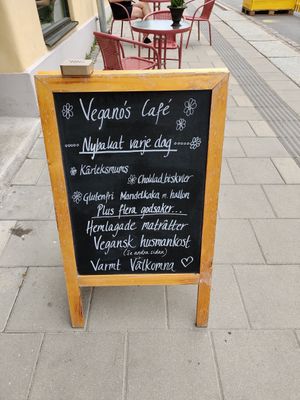 Vegano's Café
Nybakat varje dag
Kärleksmums
Chokladbiskvier
Glutenfri Mandelkaka m. hallon
Plus flera godsaker...
Hemlagade maträtter
Vegansk husmankost
(Se andra sidan)
Varmt Välkomna